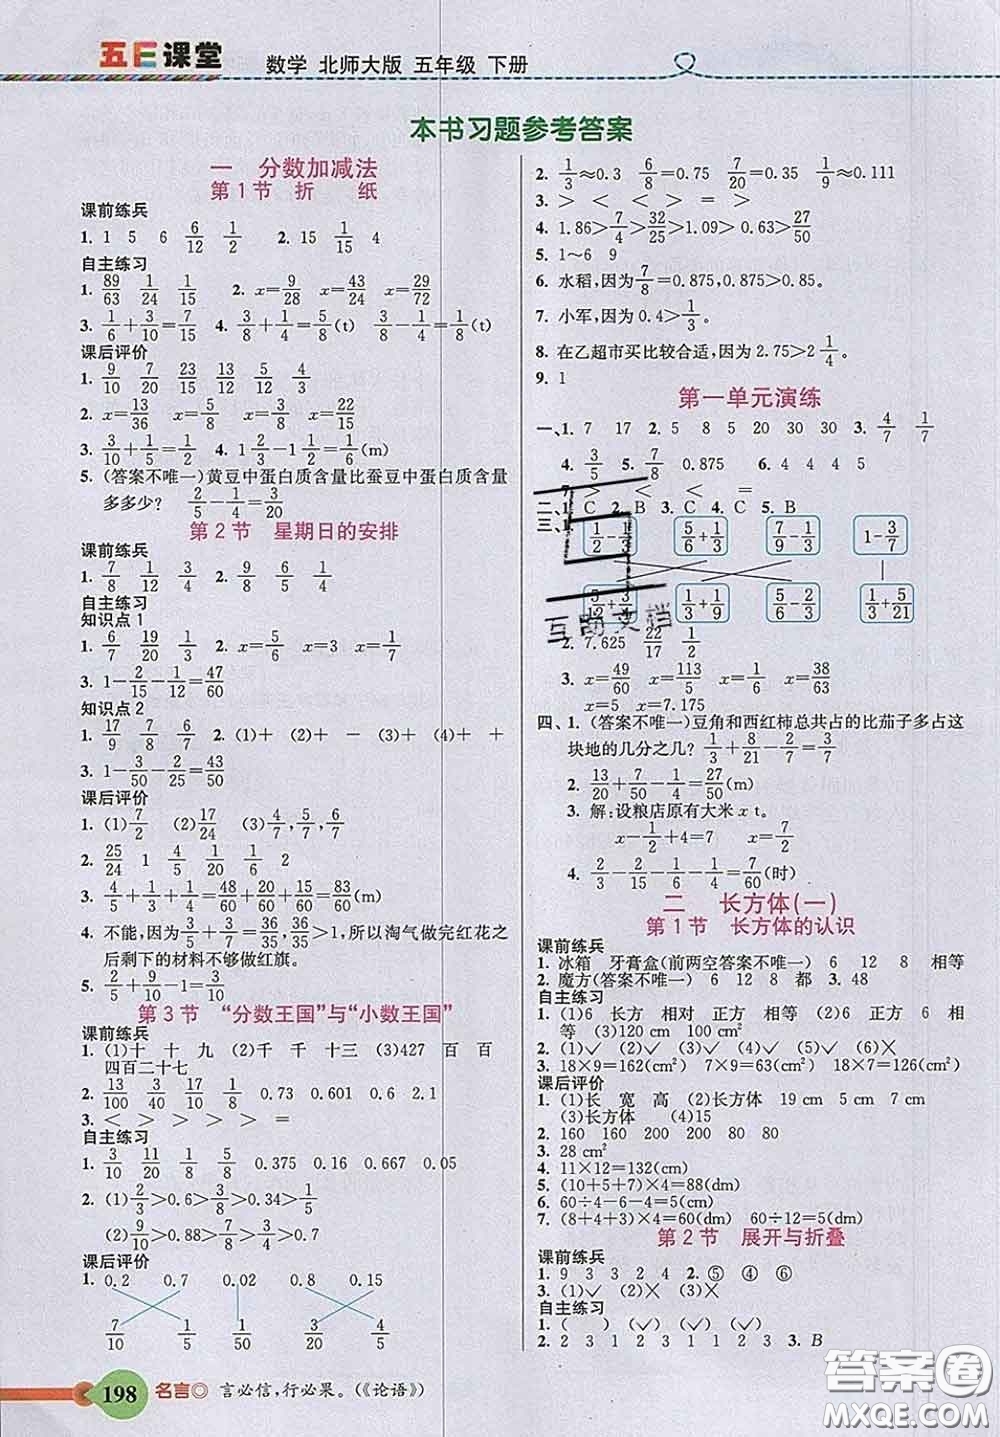 五E课堂
数学 北师大版 五年级 下册
本书习题参考答案
一 分数加减法
第1节 折 纸
课前练兵
1. 1 5 6 6/12 1/2 2. 15 1/15 4
自主练习
1. 89/63 1/24 1/15 2. x=9/28 x=43/24 x=29/72
3. 1/6+3/10=7/15 4. 3/8+1/4=5/8(t) 3/8-1/4=1/8(t)
课后评价
1. 9/10 7/20 23/15 13/12 5/12 4/3
2. x=13/36 x=5/8 x=3/8 x=22/15
3. 3/10+1/5=1/2(m) 4. 1 1/2-1/2=1(m)
5. (答案不唯一)黄豆中蛋白质含量比蚕豆中蛋白质含量
多多少? 2/5-1/4=3/20
第2节 星期日的安排
课前练兵
1. 7/8 1/8 1/12 2. 9/8 1/6 5/4
自主练习
知识点1
1. 6/7 7/9 1/4 2. x=3/5 x=1/2 x=5/6
3. 1-2/15-1/12=47/60
知识点2
1. 17/9 7/8 7/6 2. (1)+ (2)+ - (3)+ (4)+ +
3. 1-3/50-2/25=43/50
课后评价
1. (1)7/2 (2)17/24 (3)4/7,5/7,6/7
2. 25/24 1 4/5 1/20 1/6 2
3. 4/5+1/3+1/4=48/60+20/60+15/60=83/60(m)
4. 不能,因为3/5+3/7=36/35,36/35>1,所以淘气做完红花之
后剩下的材料不够做红旗。
5. 2/5+9/10-1=3/10
第3节 “分数王国”与“小数王国”
课前练兵
1. (1)十 十 九 (2)千 千 十三 (3)427 百 百
四百二十七
2. 13/100 43/40 17/20 1/8 0.73 0.601 0.6 2.1
3. < > > > > =
自主练习
1. 3/10 11/20 1/8 5/5 0.375 0.16 0.667 0.05
2. (1)7/8>0.6>3/8>0.34>1/5
(2)9/10>0.88>7/8>0.77>5/7
课后评价
1. 0.2 0.7 0.02 0.8 0.15
7/10 1/5 1/50 3/20 4/5
198 名言◎ 言必信,行必果。(《论语》)
2. 1/3≈0.3 6/8=0.75 7/20=0.35 1/9≈0.111
3. > < < > = >
4. 1.86>7/4>32/25>1.09> 0.63>27/50
5. 1~6 9
6. 水稻,因为7/8=0.875,0.875>0.82。
7. 小军,因为0.4>1/3。
8. 在乙超市买比较合适,因为2.75>2 1/4。
9. 1
第一单元演练
一、1. 7 17 2. 5 8 5 20 30 30 3. 4/7 1/7
4. 3/5 5. 7/8 0.875 6. 4 4 4 5
7. > < < = >
二、1. C 2. B 3. C 4. C 5. B
三、1. 1/2-1/3 5/6+1/3 7/9-1/3 1-3/7
5/12+3/4 1/3+1/9 5/6-2/3 1/3+5/21
2. 7.625 22/17 1/2
3. x=49/60 x=113/5 x=1/6 x=38/63
x=5 x=7.175
四、1. (答案不唯一)豆角和西红柿总共占的比茄子多占这
块地的几分之几? 1/3+8/21-2/7=3/7
2. 13/20+7/50-1/4=27/50(m)
3. 解:设粮店原有大米x t。
x-1/2+4=7 x=7/2
4. 2/3-2/15-1/6-1/4=7/60(时)
二 长方体(一)
第1节 长方体的认识
课前练兵
1. 冰箱 牙膏盒(前两空答案不唯一) 6 12 8 相等
2. 魔方(答案不唯一) 6 12 8 都 3. 48
自主练习
1. (1)6 长方 相对 正方 相等 (2)6 正方 6 相
等 (3)120 cm 100 cm²
2. (1)✓ (2)✓ (3)✓ (4)✓ (5)✓ (6)×
3. 18×9=162(cm²) 7×9=63(cm²) 18×7=126(cm²)
课后评价
1. (1)长 宽 高 (2)长方体 19 cm 5 cm 7 cm
(3)长方体 (4)15
2. 160 160 200 200 80 80
3. 28 cm²
4. 11×12=132(cm²)
5. (10+5+7)×4=88(cm)
6. 60÷4-6-4=5(cm)
7. (8+4+3)×4=60(dm) 60÷12=5(dm)
第2节 展开与折叠
课前练兵
1. 9 3 3 2 4 2. ⑤ ④ ⑥
3. (1)✓ (2)× (3)×
自主练习
1. ( ) (✓) (✓) (✓)
2. 2 3 1 2 3 1 1 2 3 3. B
互助文档
答案圈
MXQE.COM